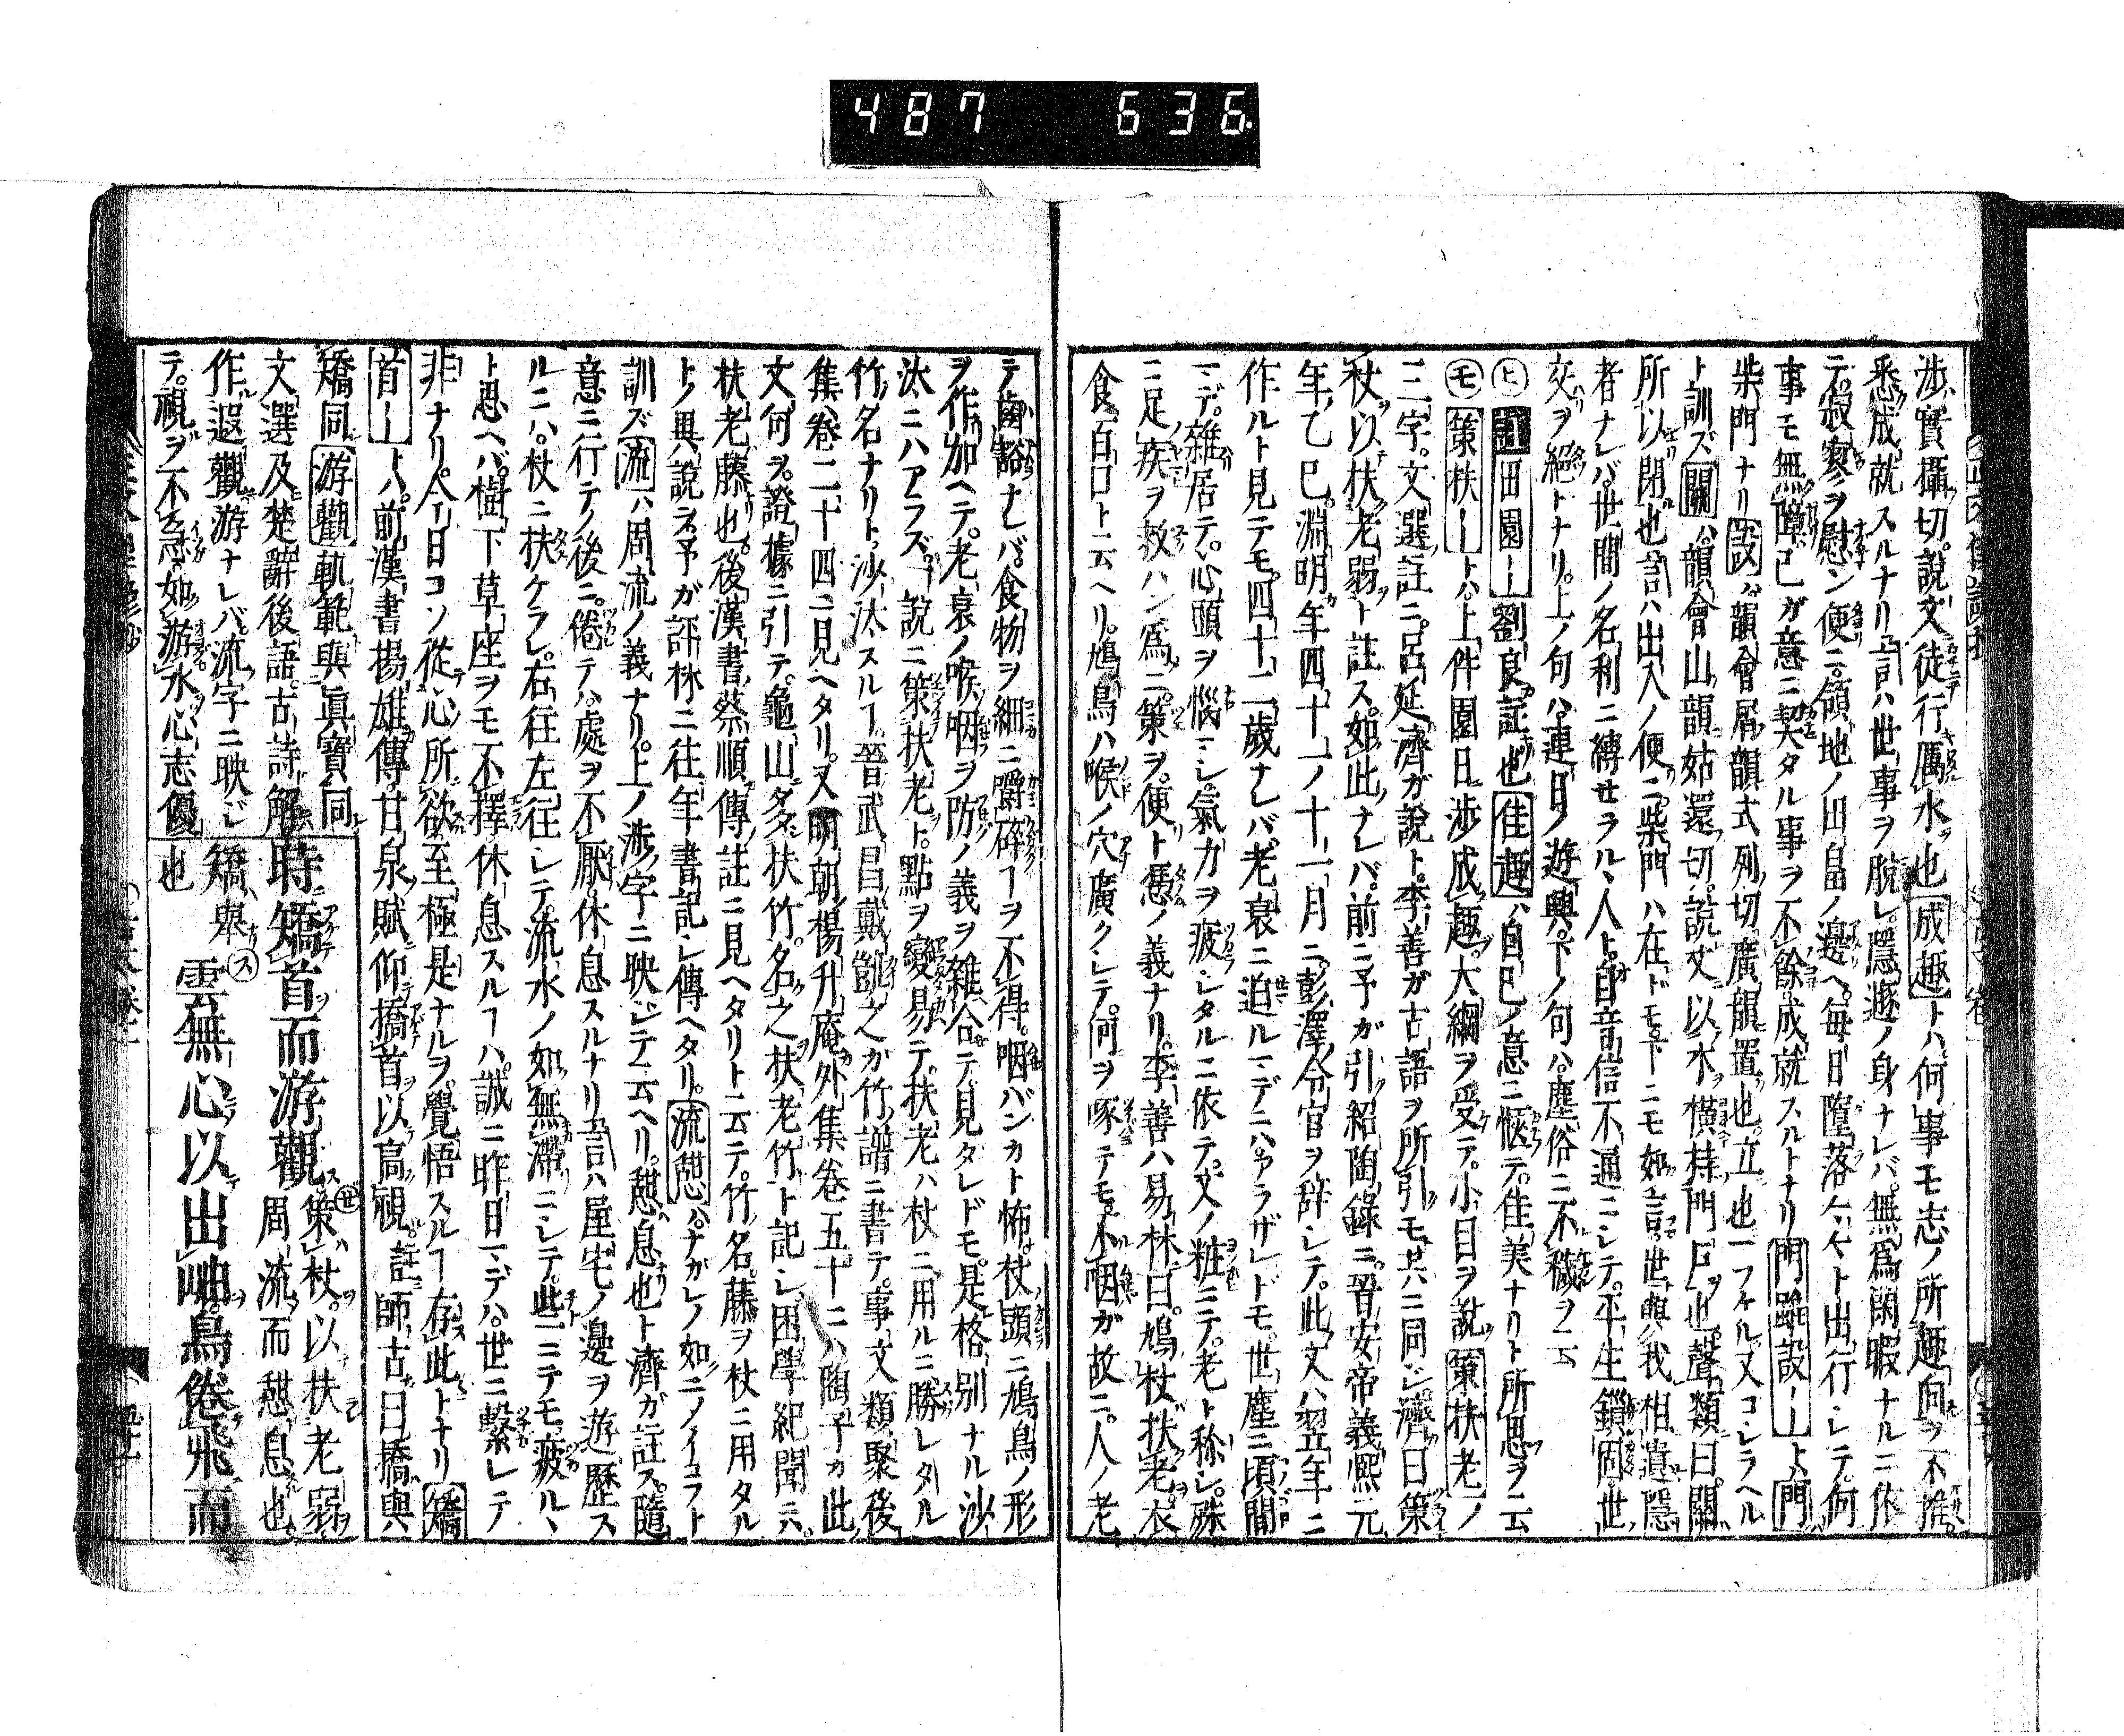 487 636
渉實攝切。說文徒行厲水也成趣トハ何事モ志ノ所趣向ヲ不推
悉成就スルナリ言ハ世事ヲ脫レ隱遯ノ身ナレバ無爲閑暇ナルニ依
テ。寂寥ヲ慰ン便ニ。領地ノ田畠ノ邊ヘ。毎日墮落々々ト出行シテ。何
事モ無障。己ガ意ニ契タル事ヲ不餘成就スルトナリ門雖設ートハ門
柴門ナリ設ハ韻會屑韻式列切。廣韻置也。立也
ト訓ズ關ハ韻會山韻姑還切。說文以木橫持門戸也。聲類曰。關
所以閉也言ハ出入ノ便ニ柴門ハ在ドモ下ニモ如言世與我相遺隱
者ナレバ世間ノ名利ニ縛セラルヽ人ト自音信不通ニシテ。平生鎖固世
交ヲ絕トナリ。上ノ句ハ連日ノ遊興。下ノ句ハ塵俗ニ不穢ヲ云
ヒ註田園ー劉良註也佳趣ハ自己ノ意ニ愜テ。佳美ナリト所思ヲ云
モ策扶ートハ上件園日渉成趣。大綱ヲ受テ。小目ヲ說策扶老ノ
三字。文選註ニ。呂延濟ガ說ト。李善ガ古語ヲ所引モ共ニ同ジ濟曰策
杖以扶老弱ト註ス。如此ナレバ前ニ予ガ引紹陶錄ニ。晉安帝義熙元
年乙巳。淵明年四十一ノ十一月ニ。彭澤令官ヲ辞シテ。此文ハ翌年ニ
作ルト見テモ。四十二歲ナレバ。老衰ニ迫ルマデニハアラザレドモ。世塵ニ頃間
マデ。雜居テ。心頭ヲ惱マシ。氣力ヲ疲シタルニ依テ。文ノ粧ニテ。老ト称シ。殊
ニ足疾ヲ救ハン爲ニ。策ヲ。便ト憑ノ義ナリ。李善ハ易林曰。鳩杖扶老。衣
食百口ト云ヘリ。鳩鳥ハ喉ノ穴廣クシテ。何ヲ啄テモ不咽ガ故ニ。人ノ老
テ齒豁ナレバ。食物ヲ細ニ嚼碎ーヲ不得。咽バンカト怖。杖頭ニ鳩鳥ノ形
ヲ作加ヘテ。老衰ノ喉咽ヲ防ノ義ヲ雜合テ見タレドモ。是格別ナル沙
汰ニハアラズ。一說ニ策扶老ト。點ヲ變易テ。扶老ハ杖ニ用ルニ勝レタル
竹名ナリト沙汰スルヿ。晉武昌戴凱之ガ竹譜ニ書テ。事文類聚後
集卷二十四ニ見ヘタリ。又明朝楊升庵外集卷五十ニハ陶子ガ此
文何ヲ。證據ニ引テ。龜山多扶竹名之扶老竹ト記シ。困學紀聞ニハ。
扶老藤也。後漢書蔡順傳註ニ見ヘタリト云テ。竹名。藤ヲ杖ニ用タル
トノ異說ヲ予ガ評林ニ往年書記シ傳ヘタリ。流憩ハナガレノ如ニノイコフト
訓ズ流ハ周流ノ義ナリ。上ノ渉字ニ映ジテ云ヘリ。憩息也ト濟ガ註ス。隨
意ニ行テノ後ニ。倦テハ處ヲ不厭。休息スルナリ言ハ屋宅ノ邊ヲ遊歷ス
ルニハ。杖ニ扶ケラレ。右往左往シテ。流水ノ如無滯ニシテ。些ニテモ疲ルヽ
ト思ヘバ。樹下草座ヲモ不擇休息スルヿハ。誠ニ昨日マデハ。世ニ繫レテ
非ナリ。今日コソ從心所欲至極是ナルヲ。覺悟スルヿ存此トナリ矯
首ートハ。前漢書揚雄傳。甘泉賦仰撟首以高視。註師古曰撟與
矯同游觀軌範與眞寶同
文選及楚辭後語。古詩解
作遐觀。游ナレバ。流字ニ映ジ
テ。視ヲ不忘。如游水心志優
時矯首而游觀世策杖。以扶老弱
周流而憩息也
矯舉也ス雲無心以出岫。鳥倦飛而